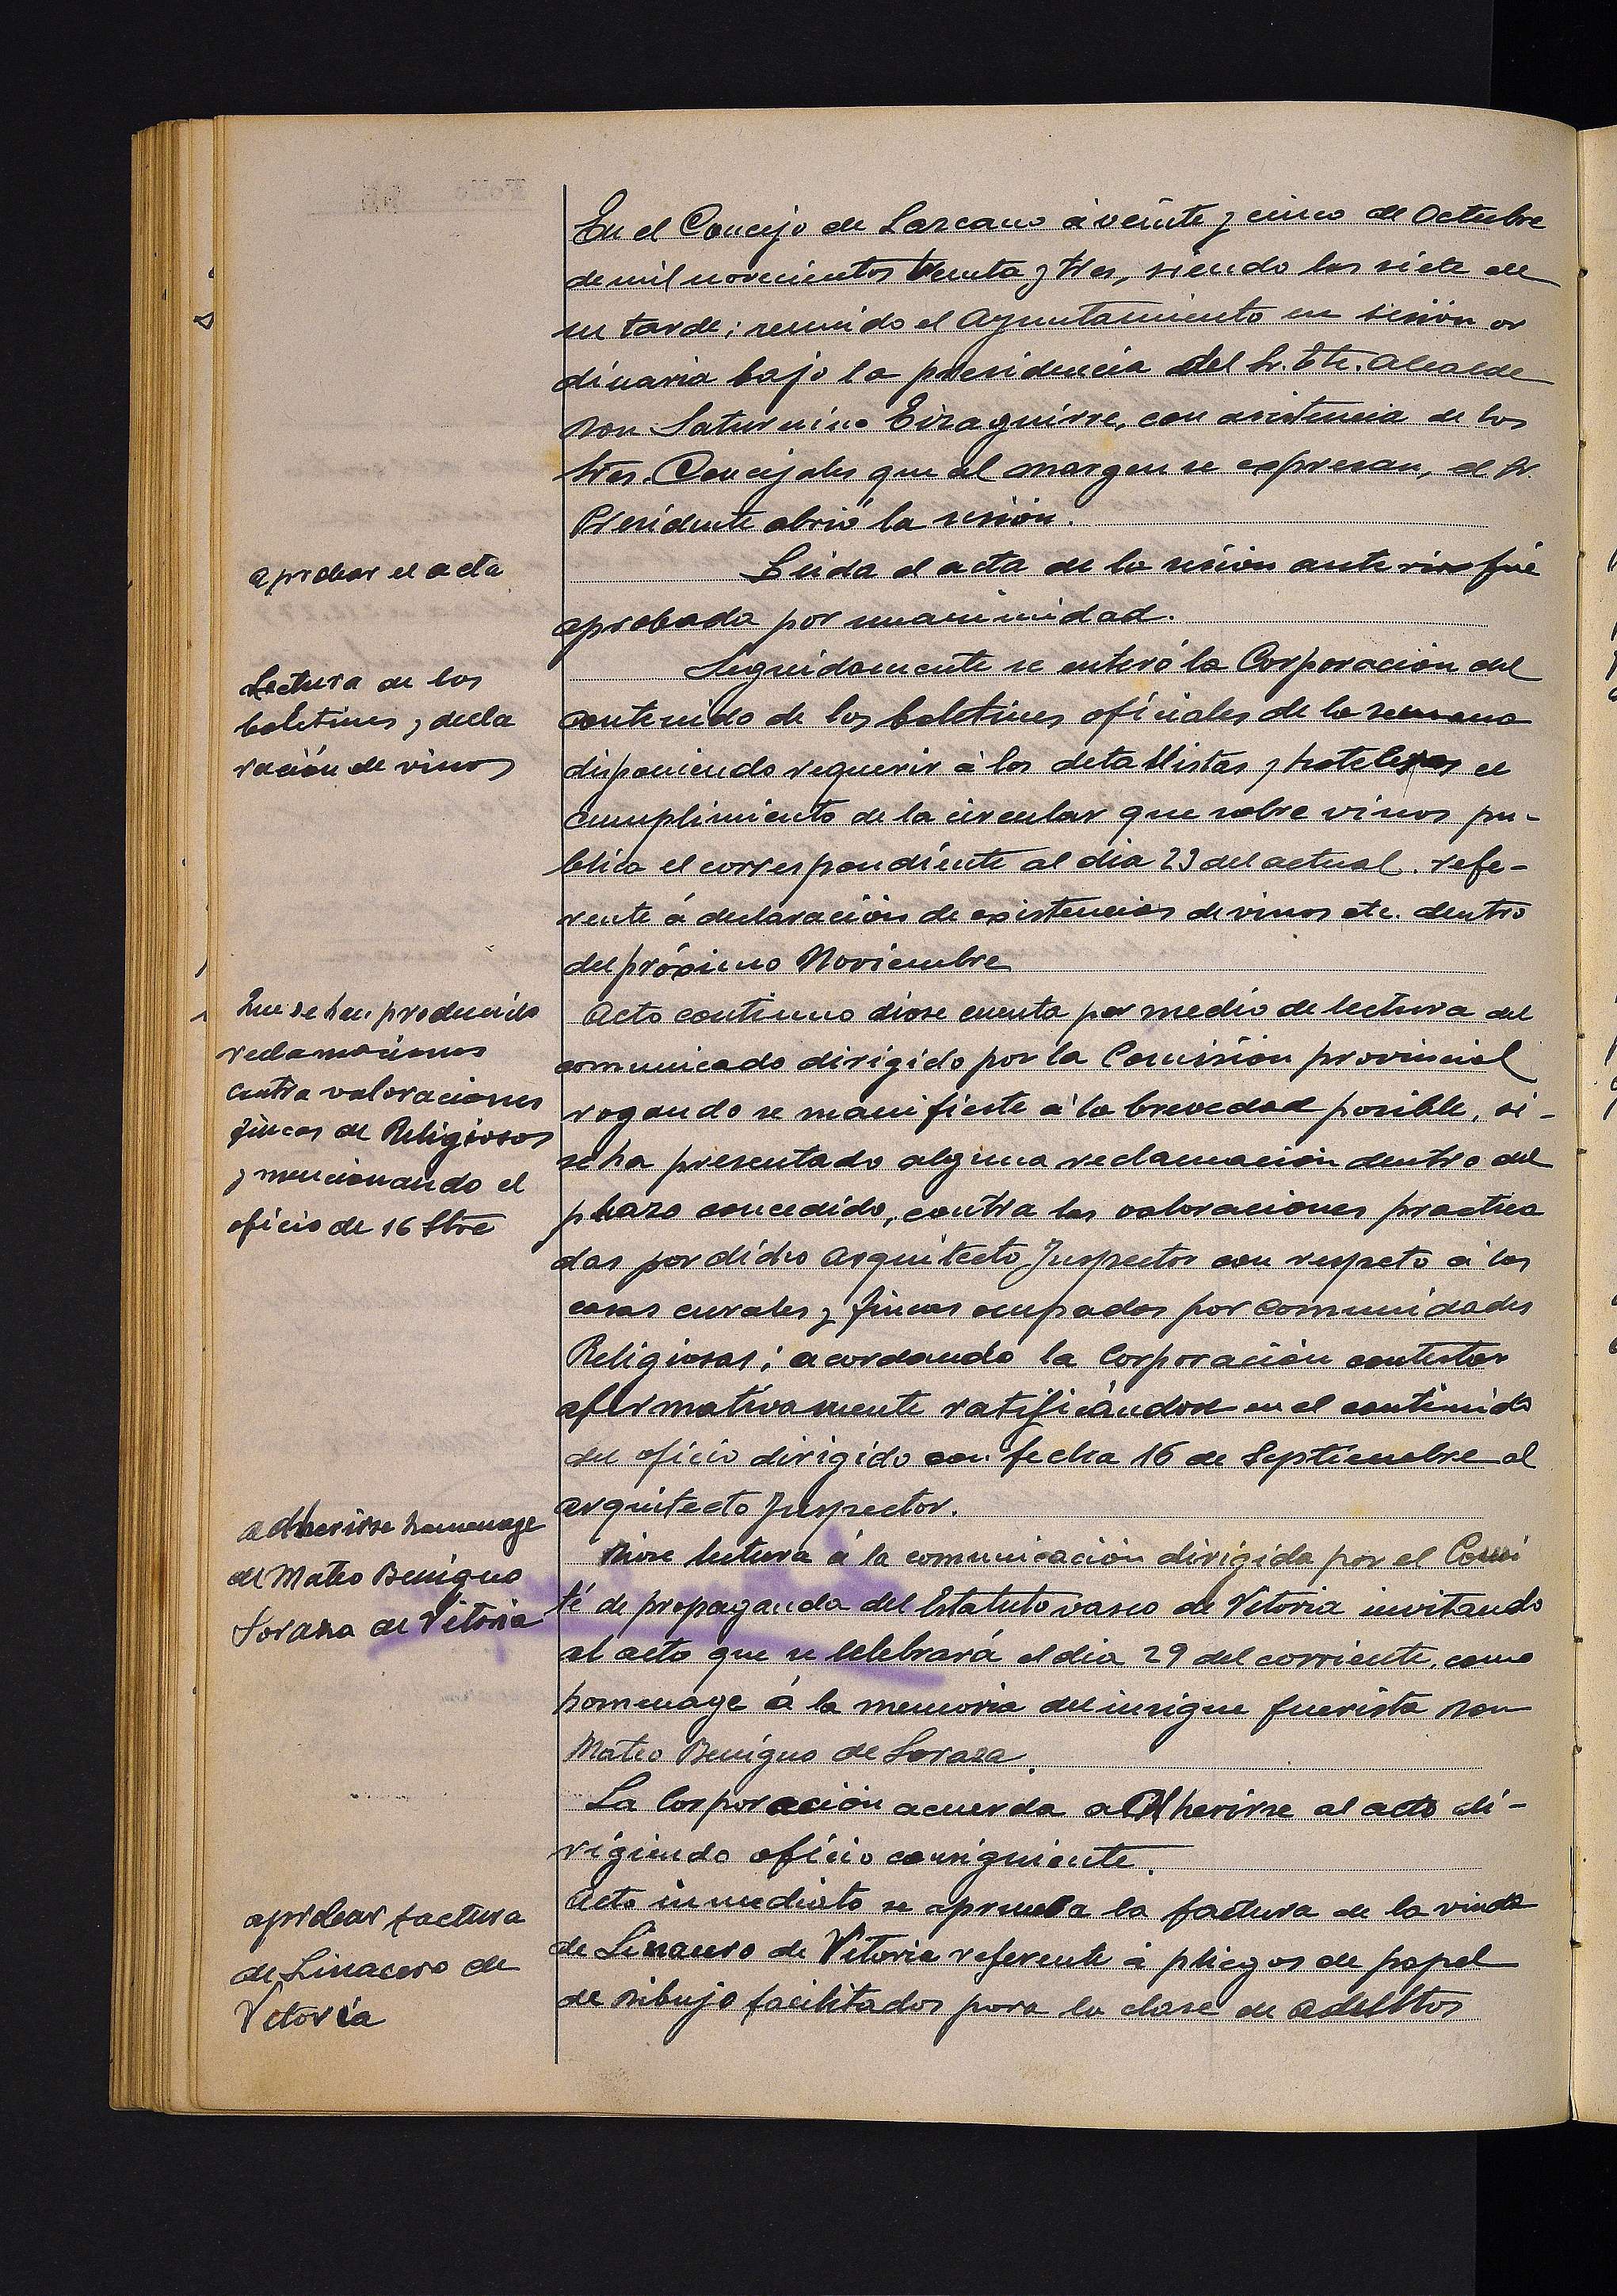 En el Concejo de Lazcano á veinte y cinco de Octubre
de mil novecientos treinta y tres, siendo las siete de
su tarde; reunido el Ayuntamiento en sesión or
dinaria bajo la presidencia del Sr. Tte. Alcalde
Don Saturnino Eizaguirre, con asistencia de los
Sres. Concejales que al margen se expresan, el Sr.
Presidente abrió la sesión.
aprobar el acta
Leida el acta de la sesión anterior fué
aprobada por unanimidad.
Lectura de los
boletines y decla
ración de vinos
Seguidamente se enteró la Corporación del
contenido de los boletines oficiales de la semana
disponiendo requerir á los detallistas y hoteleros el
cumplimiento de la circular que sobre vinos pu-
blica el correspondiente al dia 23 del actual. refe-
rente á declaración de existencias de vinos etc. dentro
del próximo Noviembre
Que se han producido
reclamaciones
contra valoraciones
fincas de Religiosos
y mencionando el
oficio de 16 Sbre
Acto continuo dióse cuenta por medio de lectura del
comunicado dirigido por la Comisión provincial
rogando se manifieste á la brevedad posible, si-
se ha presentado alguna reclamación dentro del
plazo concedido, contra las valoraciones practica
das por dicho Arquitecto Inspector con respeto á las
casas curales y fincas ocupadas por comunidades
Religiosas; acordando la Corporación contestar
afirmativamente ratificándose en el contenido
del oficio dirigido con fecha 16 de Septiembre al
arquitecto Inspector.
adherirse homenage
de Mateo Benigno
Soraza de Vitoria
Dióse lectura á la comunicación dirigida por el Comi
té de propaganda del Estatuto vasco de Vitoria invitando
al acto que se celebrará el dia 29 del corriente. como
homenage á la memoria del insigne fuerista Don
Mateo Benigno de Soraza.
La Corporación acuerda adherirse al acto di-
rigiendo oficio consiguiente.
aprobar factura
de Linacero de
Vitoria
Acto inmediato se aprueba la factura de la viuda
de Linacero de Vitoria referente á pliegos de papel
de Dibujo facilitados para la clase de adultos